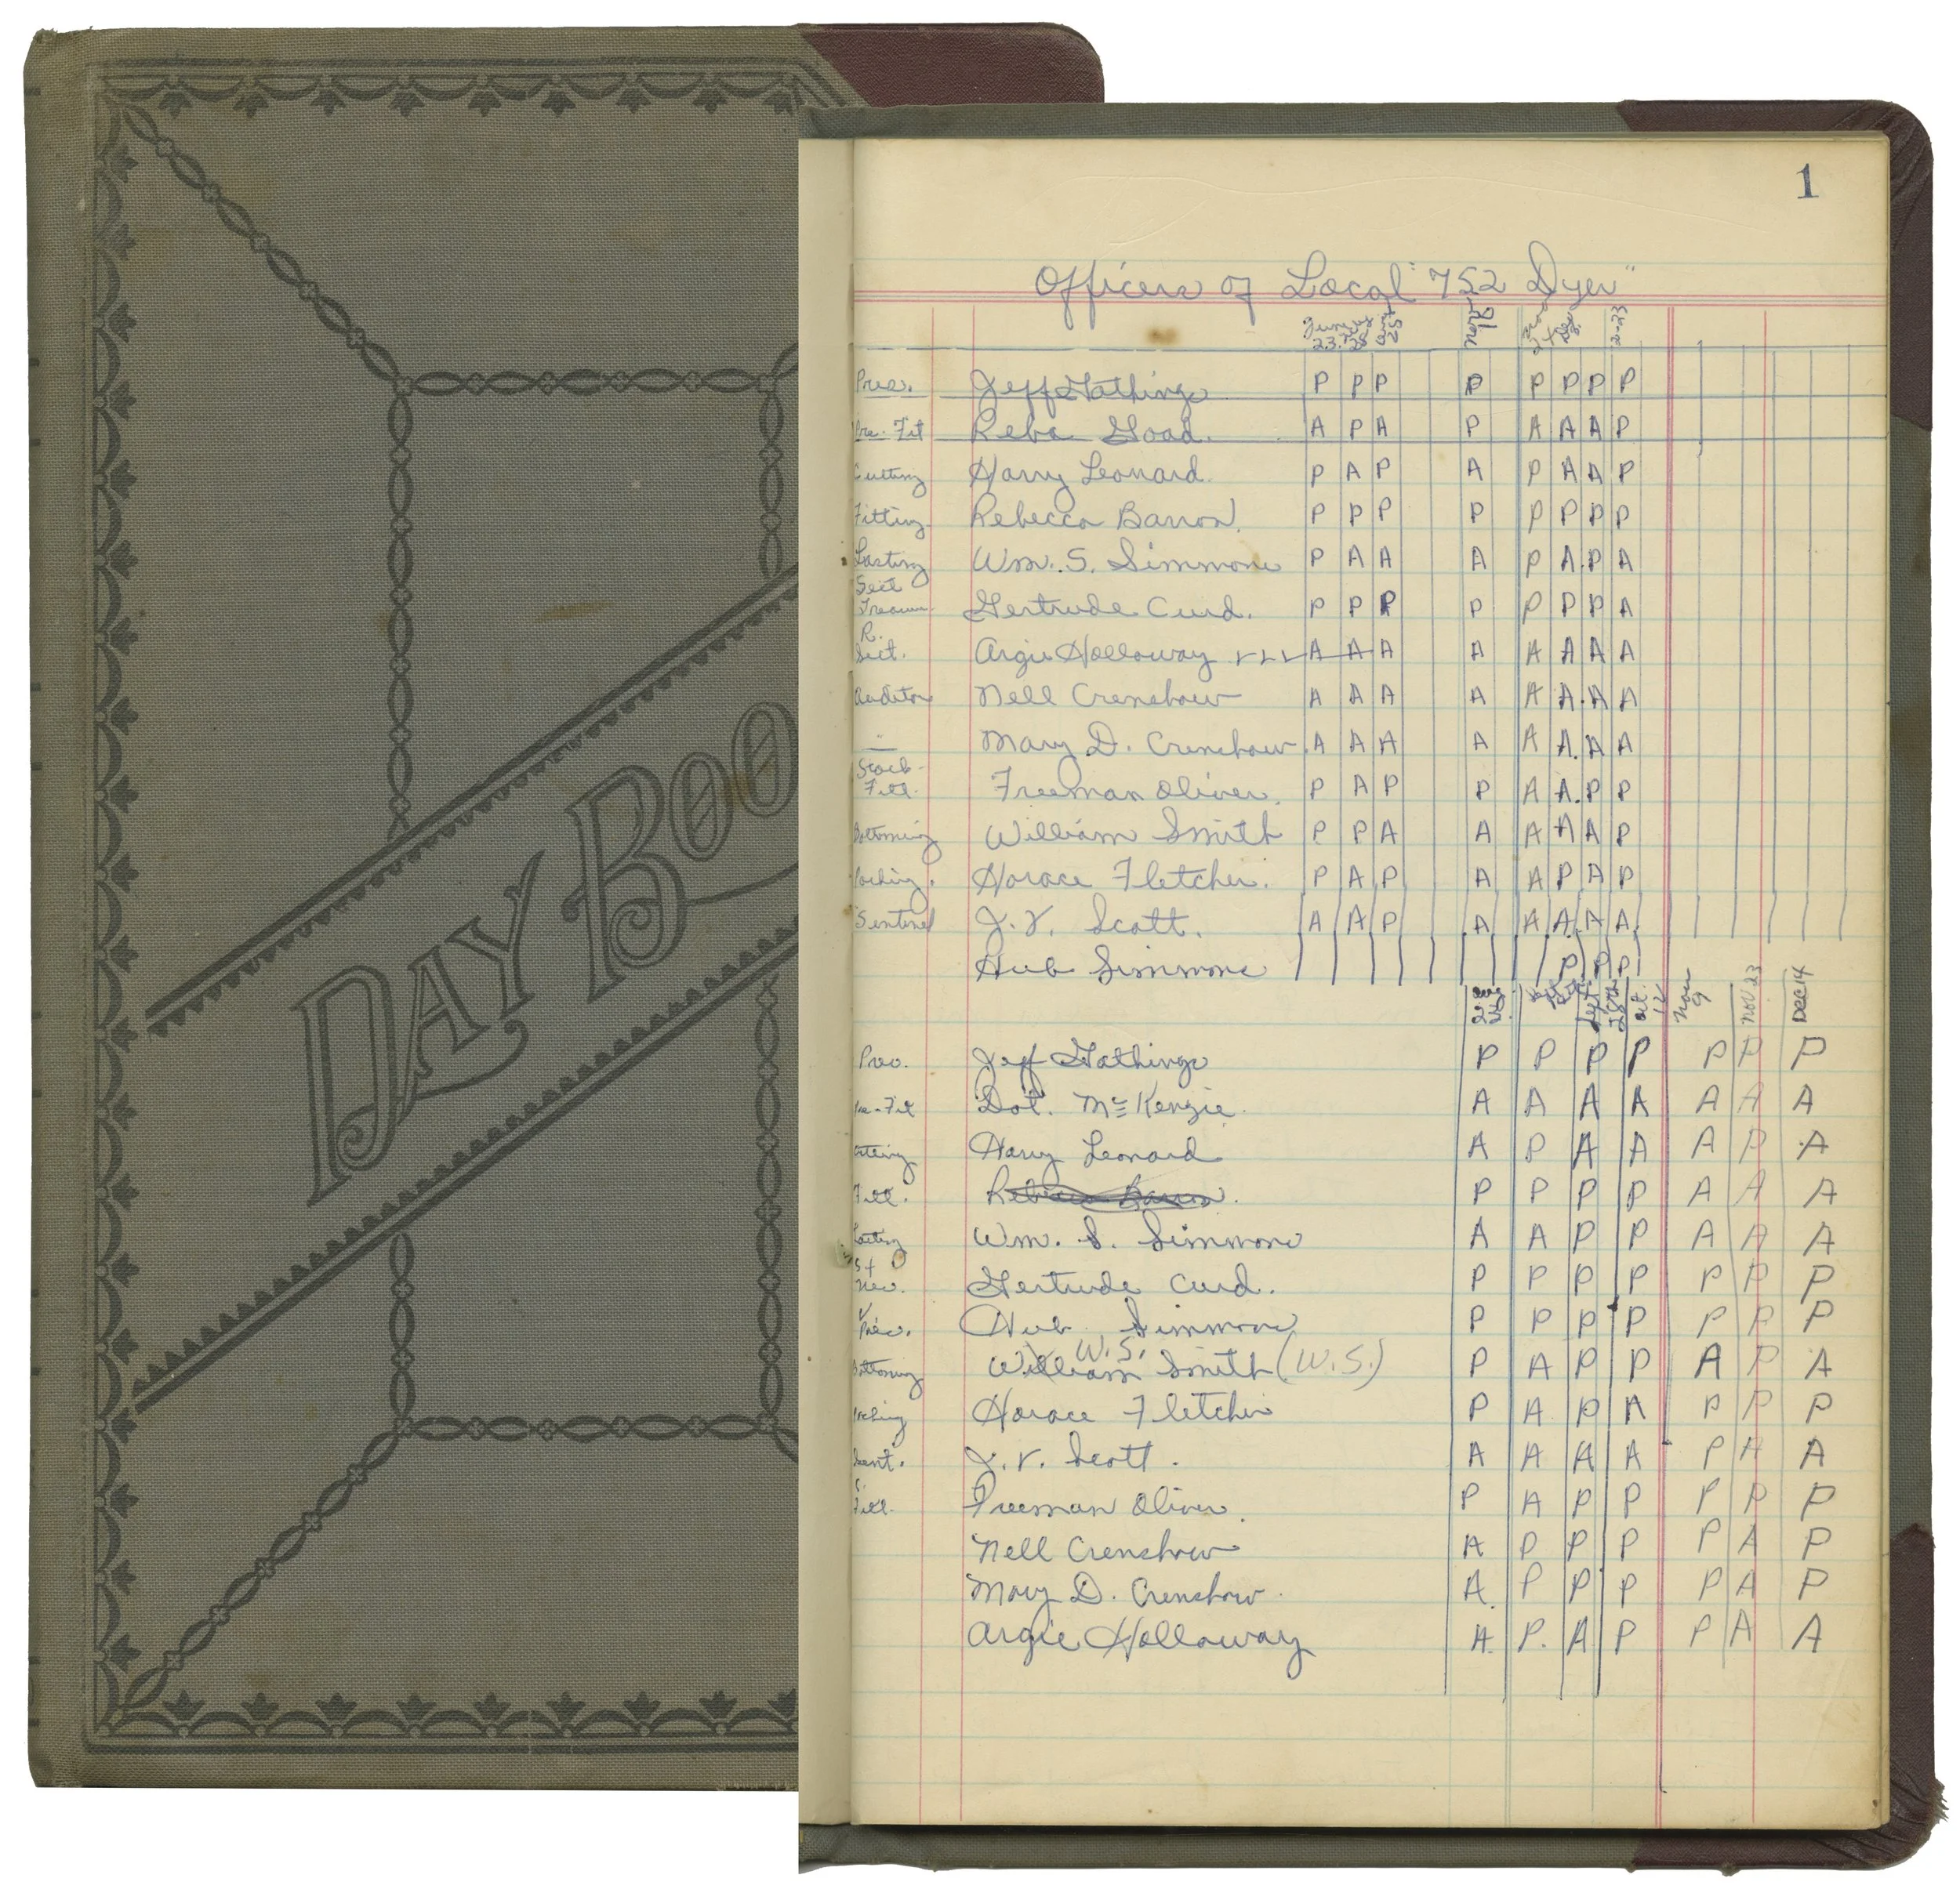 DAY BOO
1
Officers of Local "752 Dyer"
June 23. 28 25 Nov 2-23
Pres. Jeff Gathings P P P P P P P P
Pre-Fit Reba Goad. A P A P A A A P
Cutting Harry Leonard P A P A P A A P
Fitting Rebecca Barron. P P P P P P P P
Lasting Wm. S. Simmons P A A A P A. P A
Sect Treasur. Gertrude Curd. P P P P P P P A
R. Sect. Argie Holloway A A A A A A A A
Auditor Nell Crenshaw A A A A A A. A A
" Mary D. Crenshaw A A A A A A. A A
Stock-Fitt. Freeman Oliver. P A P P A A. P P
Bottoming William Smith P P A A A A A P
Packing. Horace Fletcher. P A P A A P A P
Sentinel J.V. Scott. A A P A A A. A A
Hub Simmons P P P
Aug Sept Oct. 12 Nov 9 Nov 23 DEC 14
Pres. Jeff Gathings P P P P P P P
Pre-Fit Dot. McKenzie. A A A A A A A
Cutting Harry Leonard A P A A A P A
Fitt. Rebecca Barron. P P P P A A A
Lasting Wm. S. Simmons A A P P A A A
Gertrude Curd. P P P P P P P
V Pres. Hub Simmons P P P P P P P
W.S.
Bottoming William Smith (W.S.) P A P P A P A
Packing Horace Fletcher P A P A P P P
Sent. J.V. Scott. A A A A P A A
S. Fitt. Freeman Oliver. P A P P P P P
Nell Crenshaw A P P P P A P
Mary D. Crenshaw. A. P P P P A P
Argie Holloway A. P. A P P A A